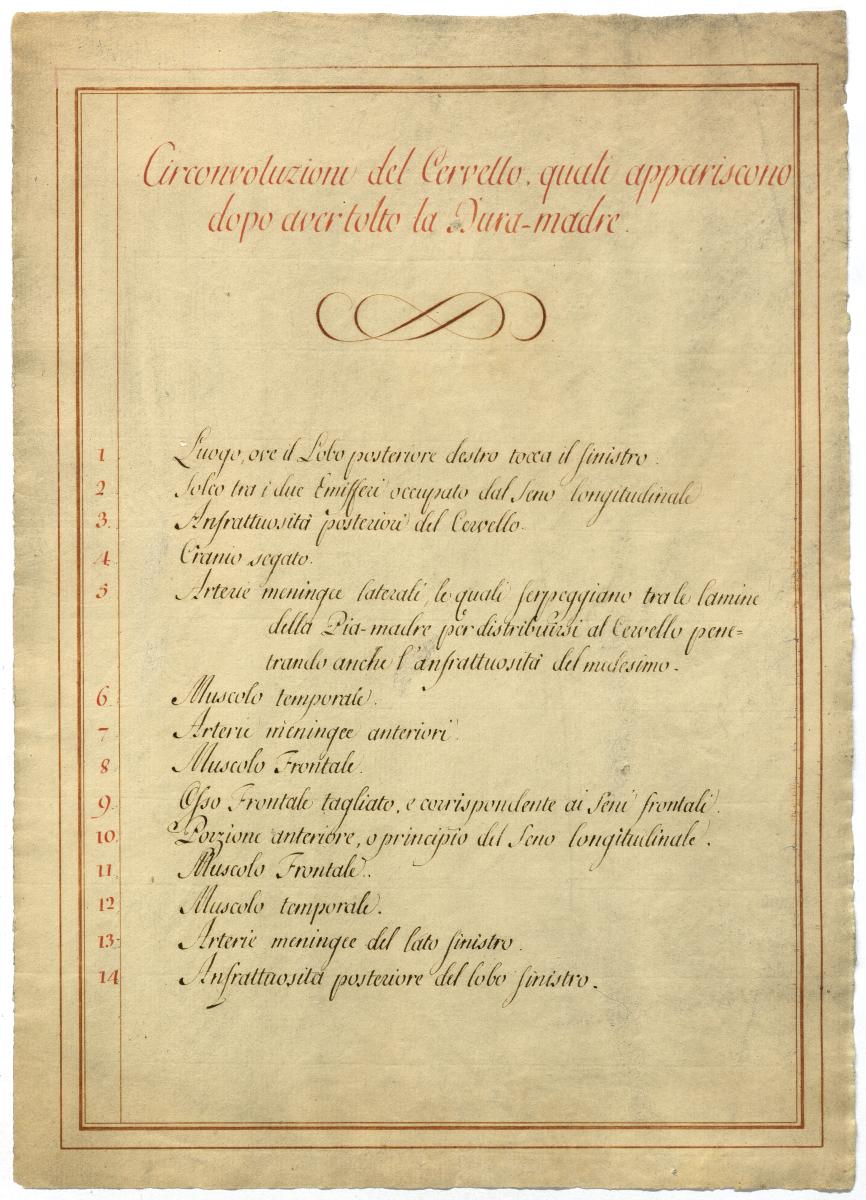 Circonvoluzioni del Cervello, quali appariscono
dopo aver tolto la Dura-madre.
1 Luogo, ove il Lobo posteriore destro tocca il sinistro.
2 Solco tra i due Emifferi occupato dal Seno longitudinale
3. Anfrattuosità posteriori del Cervello.
4 Cranio segato.
5 Arterie meningee laterali, le quali serpeggiano tra le lamine
della Pia-madre per distribuirsi al Cervello pene-
trando anche l'anfrattuosità del medesimo.
6 Muscolo temporale.
7 Arterie meningee anteriori.
8 Muscolo Frontale.
9. Osso Frontale tagliato, e corrispondente ai Seni frontali.
10. Porzione anteriore, o principio del Seno longitudinale.
11 Muscolo Frontale.
12 Muscolo temporale.
13 Arterie meningee del lato sinistro.
14 Anfrattuosità posteriore del lobo sinistro.